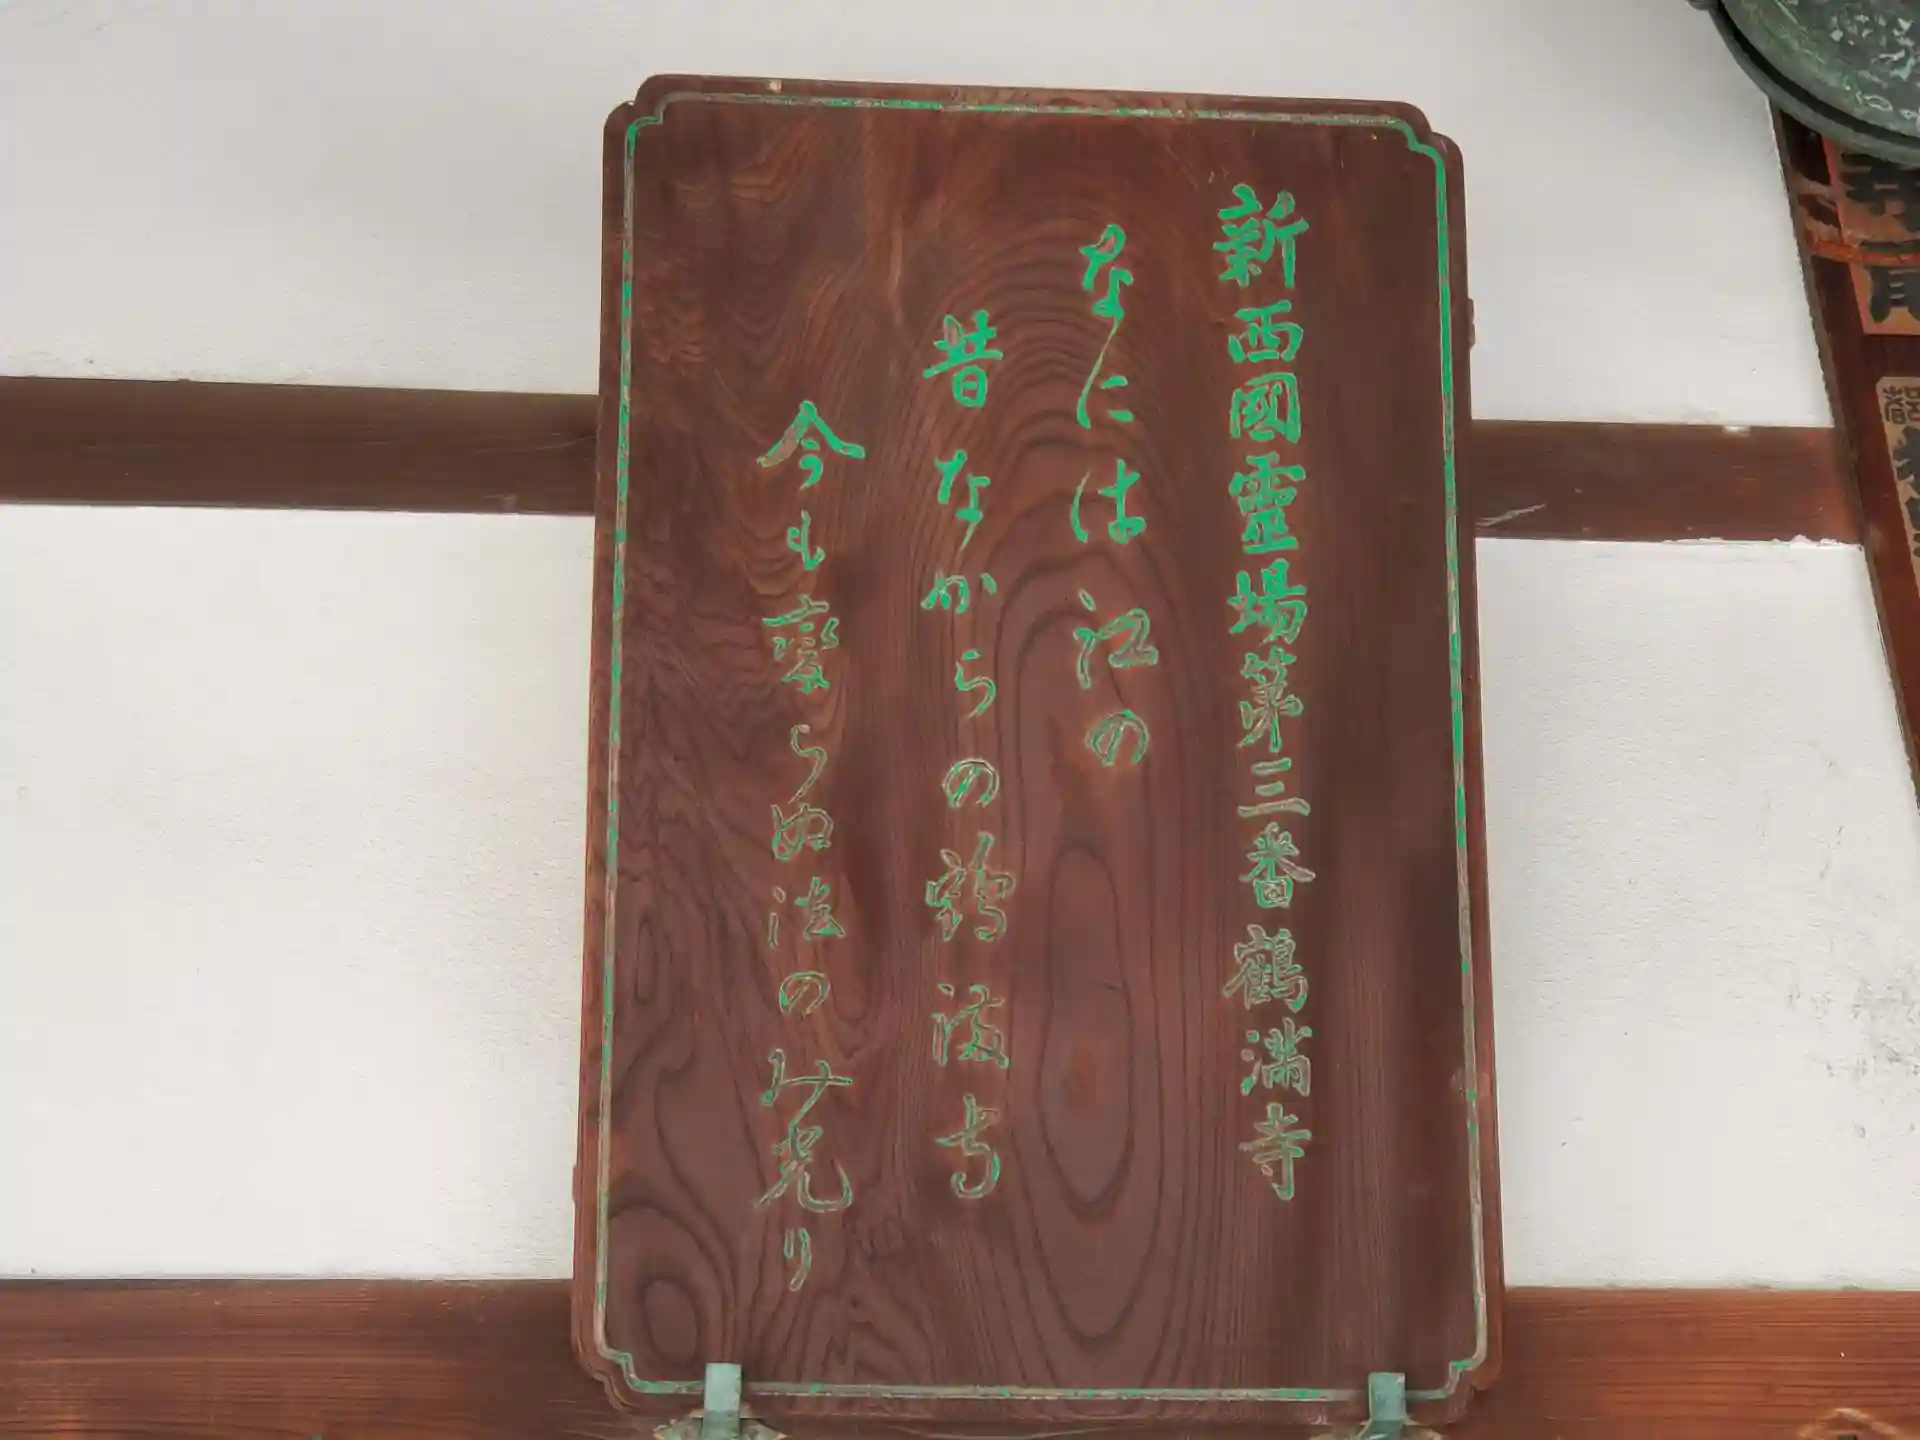 新西國靈場第三番鶴満寺
なには江の
昔なからの鶴満寺
今も変らぬ法のみ光り